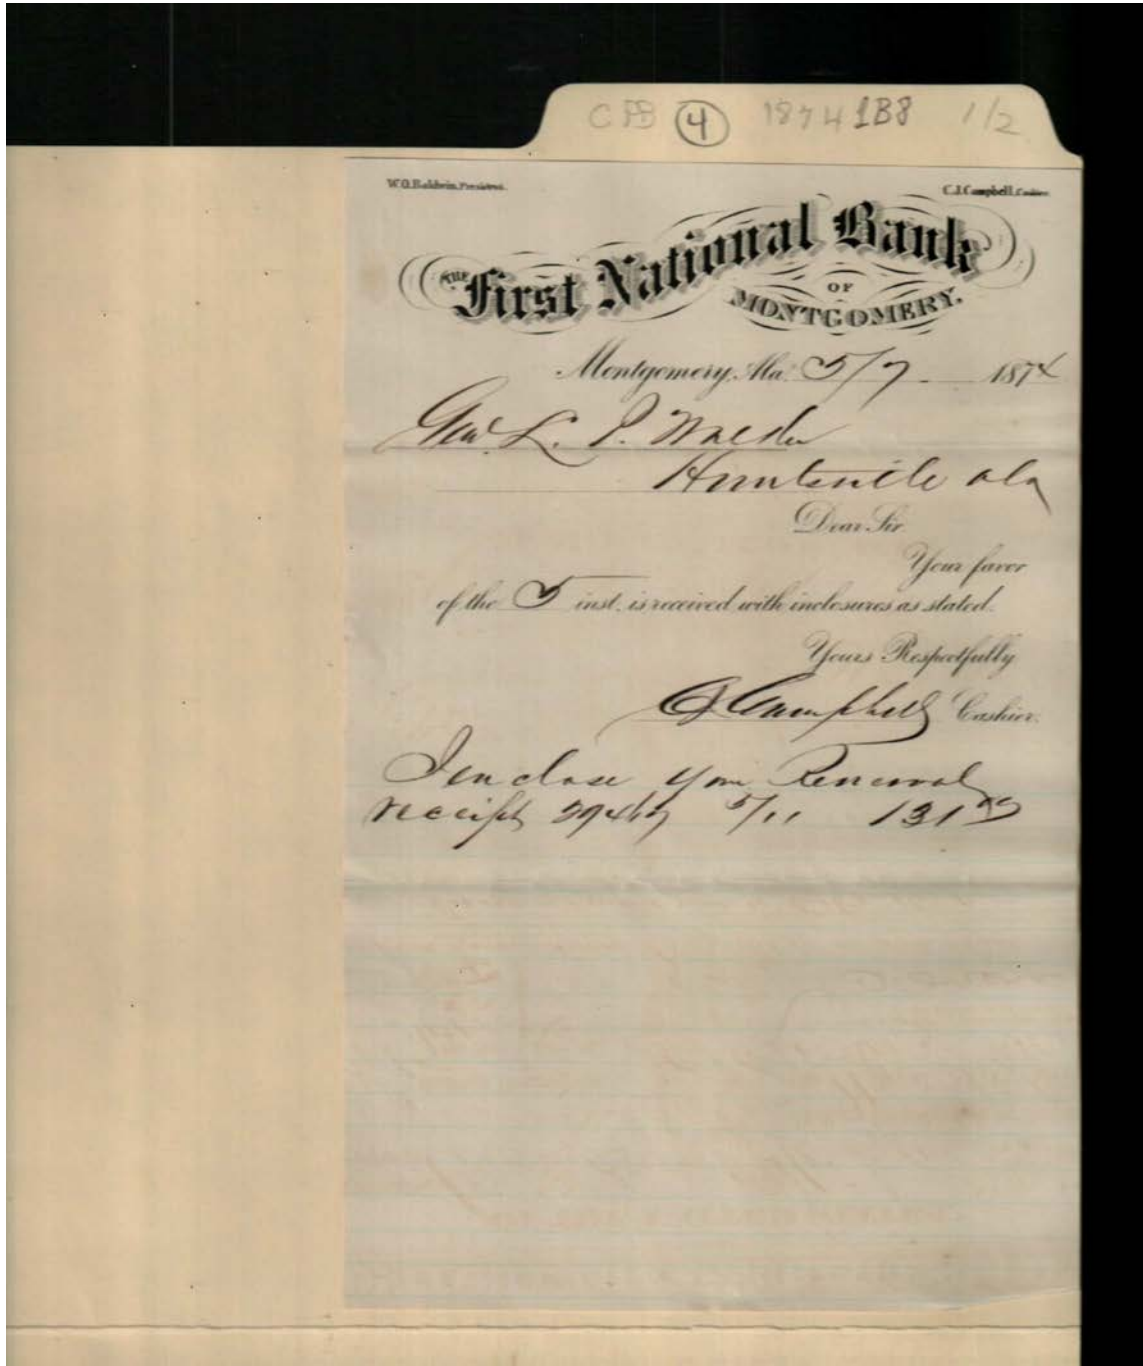 CPB 4 1874 1B8 1/2
W.O. Baldwin, President.
C.J. Campbell, Cashier
THE First National Bank
OF
MONTGOMERY.
Montgomery, Ala. 5/7 1874
Genl L. P. Walker
Huntsville Ala
Dear Sir.
Your favor
of the 5 inst. is received with inclosures as stated.
Yours Respectfully
CJ Campbell Cashier.
I enclose your Renewal
receipt 5/11 131